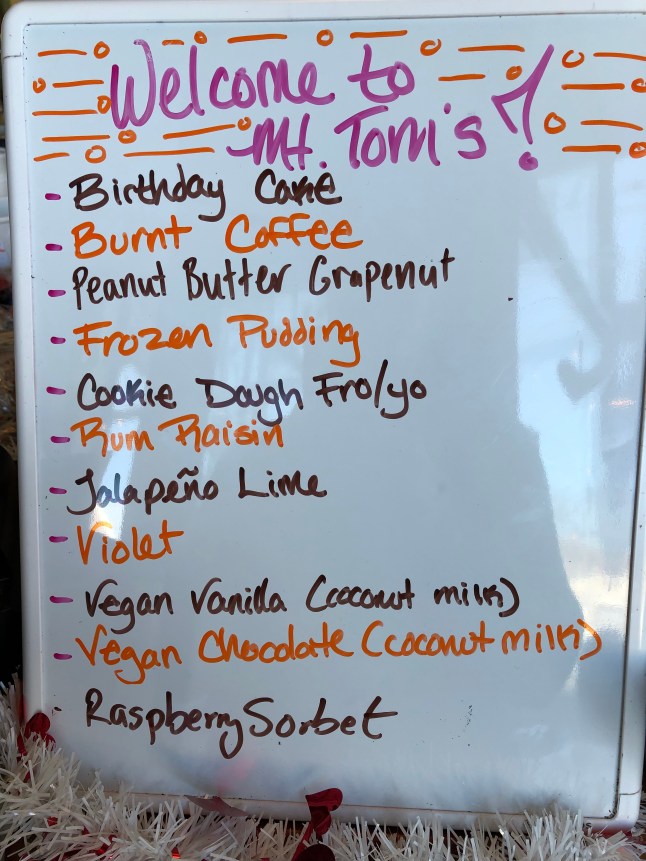 Welcome to
Mt. Tom's!
- Birthday Cake
- Burnt Coffee
- Peanut Butter Grapenut
- Frozen Pudding
- Cookie Dough Fro/yo
- Rum Raisin
- Jalapeño Lime
- Violet
- Vegan Vanilla (coconut milk)
- Vegan Chocolate (coconut milk)
- Raspberry Sorbet